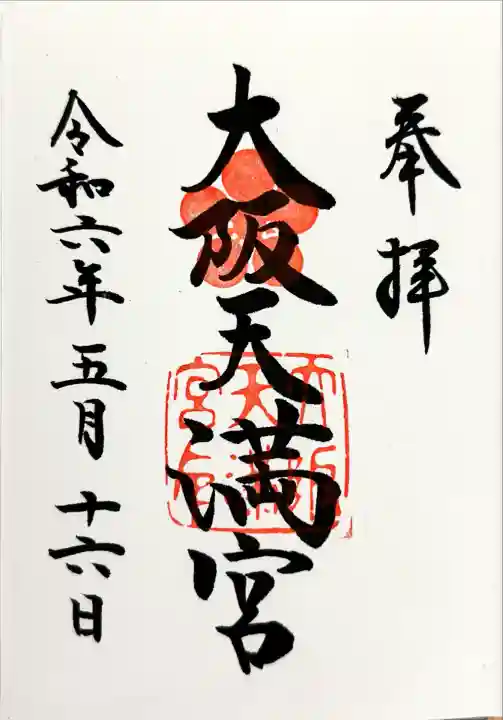 奉拝
大阪天満宮
令和六年五月十六日